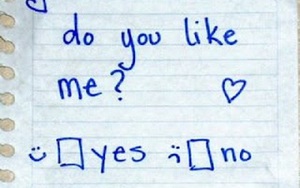 do you like
me? ♡
☐ yes ☐ no